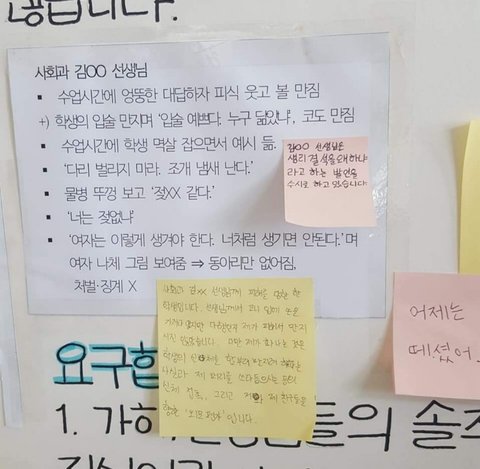 않습니다.
사회과 김OO 선생님
▪ 수업시간에 엉뚱한 대답하자 피식 웃고 볼 만짐
+) 학생의 입술 만지며 '입술 예쁘다. 누구 닮았냐', 코도 만짐
▪ 수업시간에 학생 멱살 잡으면서 예시 듦.
▪ '다리 벌리지 마라. 조개 냄새 난다.'
▪ 물병 뚜껑 보고 '젖XX 같다.'
▪ '너는 젖없냐'
▪ '여자는 이렇게 생겨야 한다. 너처럼 생기면 안된다.'며
여자 나체 그림 보여줌 ⇒ 동아리만 없어짐,
처벌·징계 X
김OO 선생님은
생리 결석을 왜 하냐
라고 하는 발언을
수시로 하고 있습니다.
사회과 김XX 선생님께 피해를 당한 한
학생입니다. 선생님께서
만지
시진 않았습니다.
학생의 신체로
사실과 제 머리를 쓰다듬으시는 등의
신체 접촉, 그리고 저와 제 친구들을
향한 '외모 평가'입니다.
어제는
떼셨어.
요구
1. 가해 들의 솔직